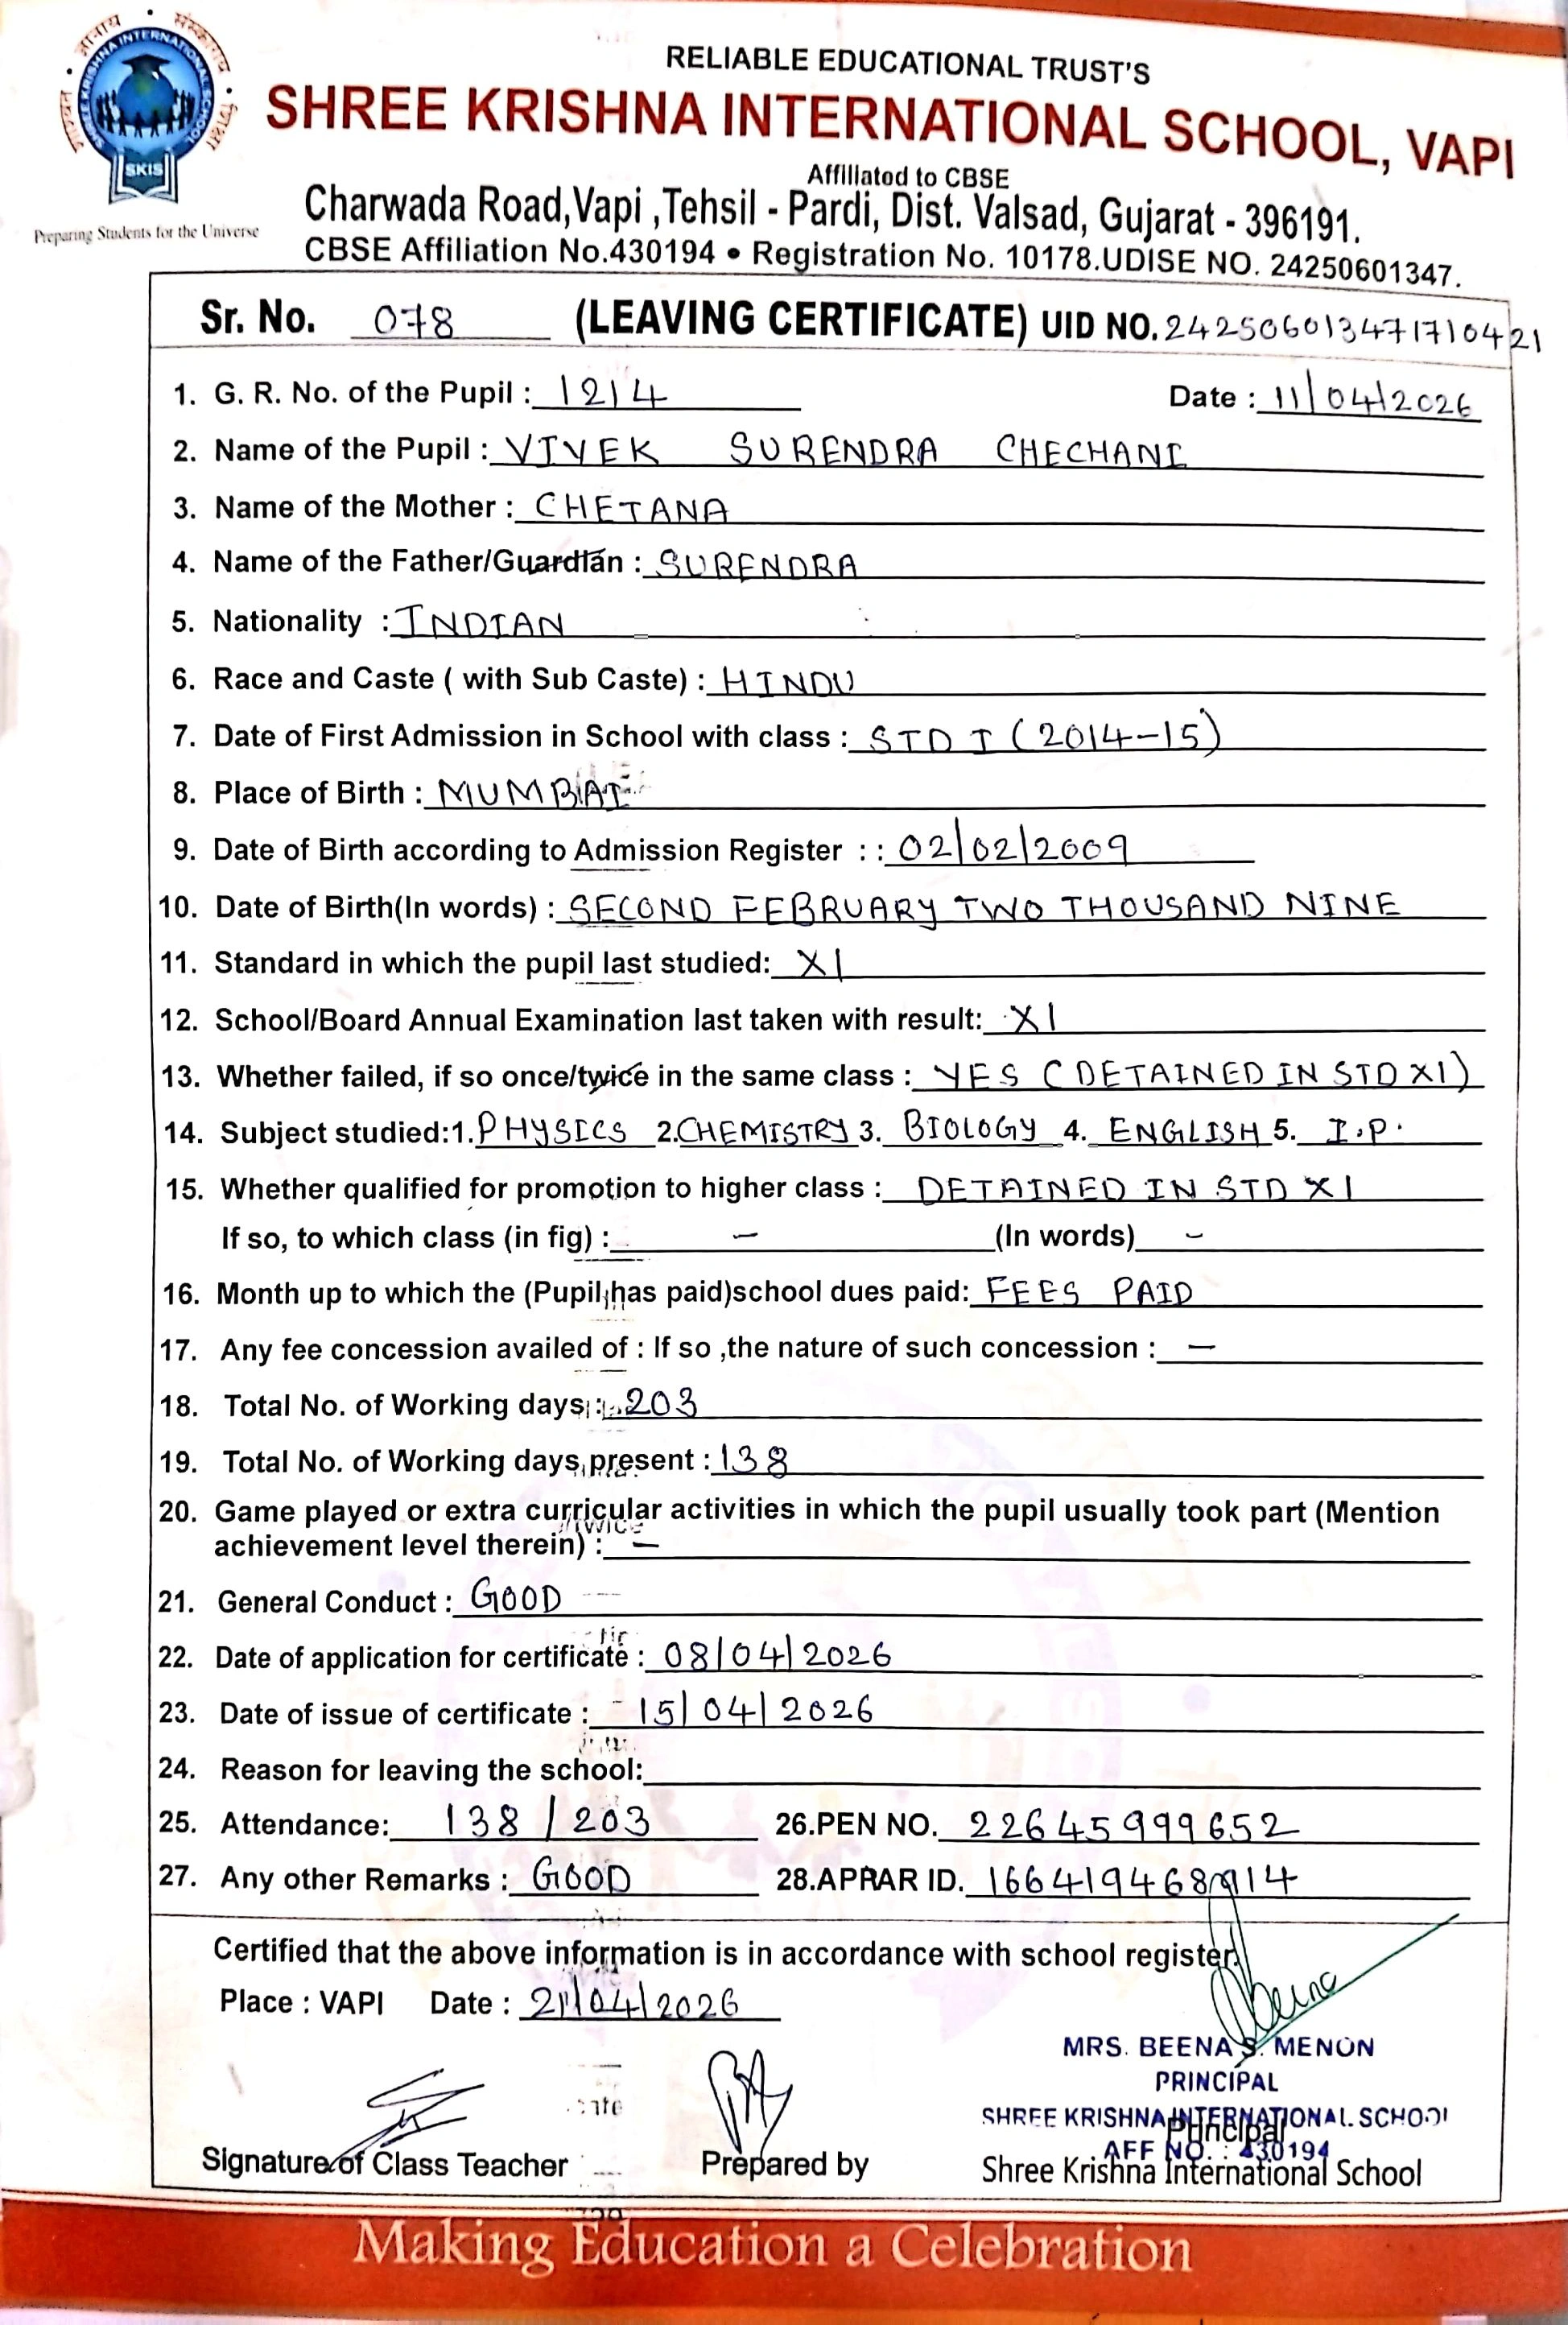 RELIABLE EDUCATIONAL TRUST'S
SHREE KRISHNA INTERNATIONAL SCHOOL, VAPI
Affiliated to CBSE
Charwada Road,Vapi ,Tehsil - Pardi, Dist. Valsad, Gujarat - 396191.
CBSE Affiliation No.430194 • Registration No. 10178.UDISE NO. 24250601347.
SHREE KRISHNA INTERNATIONAL SCHOOL
SKIS
Preparing Students for the Universe
Sr. No. 078 (LEAVING CERTIFICATE) UID NO. 242506013471710421
1. G. R. No. of the Pupil : 1214 Date : 11/04/2026
2. Name of the Pupil : VIVEK SURENDRA CHECHANI
3. Name of the Mother : CHETANA
4. Name of the Father/Guardian : SURENDRA
5. Nationality : INDIAN
6. Race and Caste ( with Sub Caste) : HINDU
7. Date of First Admission in School with class : STD I (2014-15)
8. Place of Birth : MUMBAI
9. Date of Birth according to Admission Register : : 02/02/2009
10. Date of Birth(In words) : SECOND FEBRUARY TWO THOUSAND NINE
11. Standard in which the pupil last studied: XI
12. School/Board Annual Examination last taken with result: XI
13. Whether failed, if so once/twice in the same class : YES (DETAINED IN STD XI)
14. Subject studied:1. PHYSICS 2. CHEMISTRY 3. BIOLOGY 4. ENGLISH 5. I.P.
15. Whether qualified for promotion to higher class : DETAINED IN STD XI
If so, to which class (in fig) : - (In words) -
16. Month up to which the (Pupil has paid)school dues paid: FEES PAID
17. Any fee concession availed of : If so ,the nature of such concession : -
18. Total No. of Working days : 203
19. Total No. of Working days present : 138
20. Game played or extra curricular activities in which the pupil usually took part (Mention
achievement level therein) : -
21. General Conduct : GOOD
22. Date of application for certificate : 08/04/2026
23. Date of issue of certificate : 15/04/2026
24. Reason for leaving the school:
25. Attendance: 138/203 26.PEN NO. 22645999652
27. Any other Remarks : GOOD 28.APRAR ID. 166419468914
Certified that the above information is in accordance with school register.
Place : VAPI Date : 21/04/2026
Beena
MRS. BEENA S. MENON
PRINCIPAL
SHREE KRISHNA INTERNATIONAL SCHOOL
Principal
AFF NO. : 430194
Signature of Class Teacher Prepared by Shree Krishna International School
Making Education a Celebration